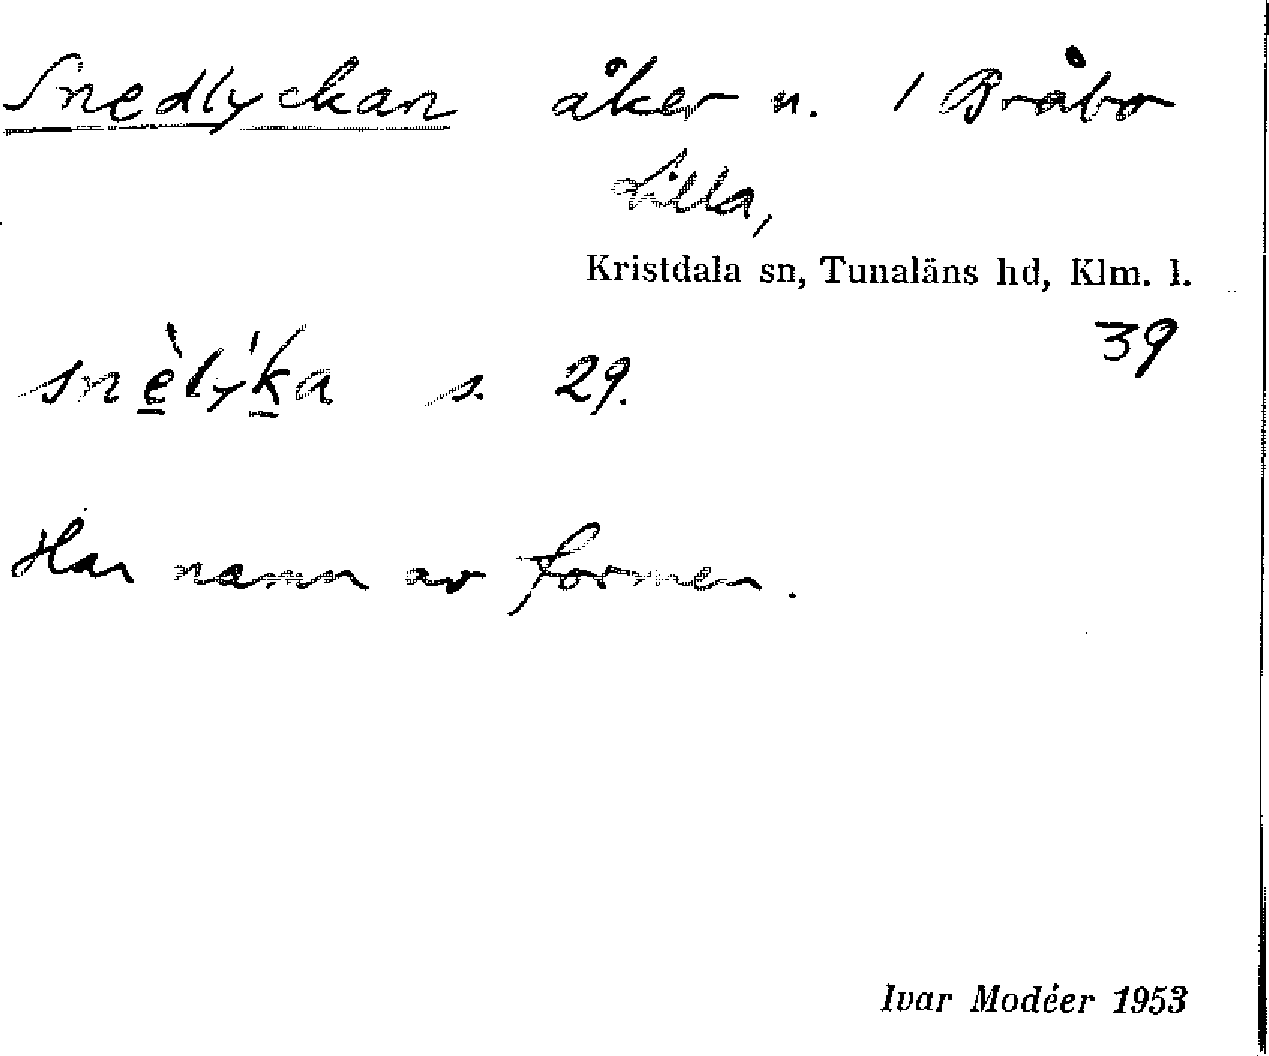 Snedlyckan åker n. / Bråbo
Lilla,
Kristdala sn, Tunaläns hd, Klm. l.
39
snèlýka s. 29.
Har namn av formen.
Ivar Modéer 1953